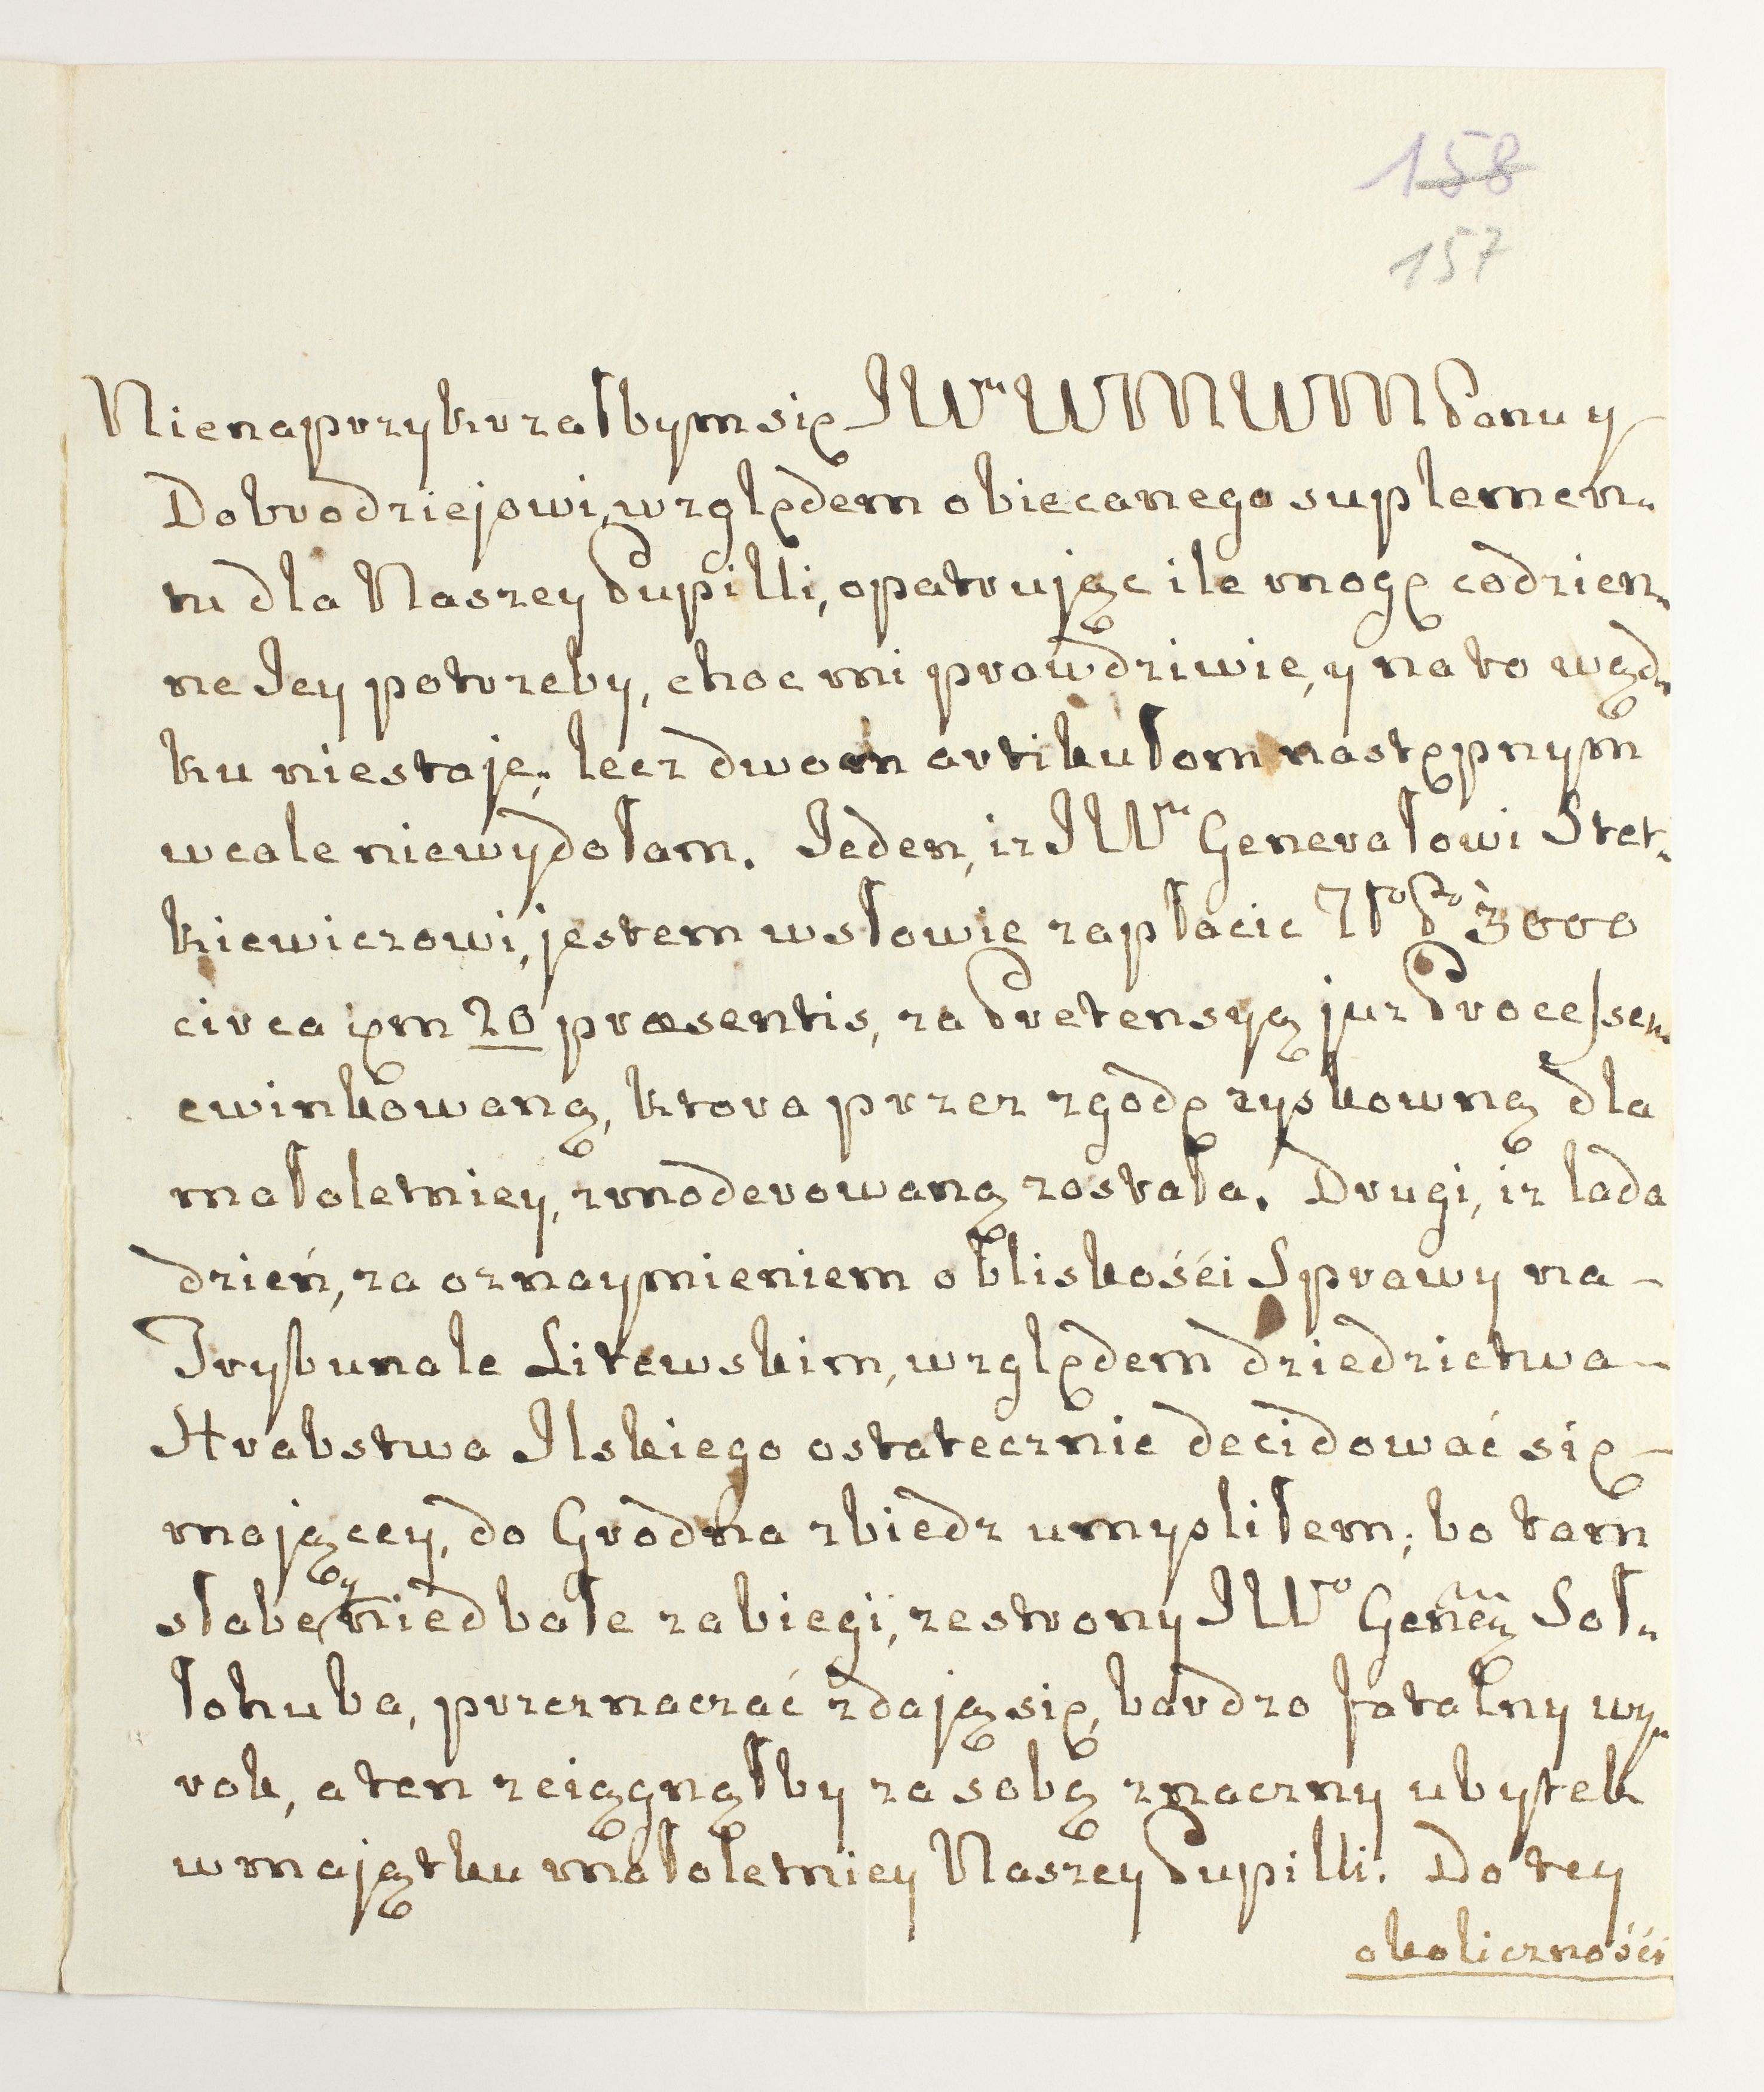 158
157
Nienaprzykrzałbym się JWu WMMWMM Panu y
Dobrodziejowi, względem obiecanego suplemen„
tu dla Naszey Pupilli, opatrując ile mogę codzien„
ne Jey potrzeby, choc mi prawdziwie, y na to wąd„
ku niestaje„ lecz dwom artikułom następnym
wcale niewydołam. Jeden, iz JWu Generałowi Stet„
kiewiczowi, jestem w słowie zapłacic 3000
circa 20 præsentis, za Pretensyą juz Processem
ewinkowaną, ktora przez zgodę zyskowną dla
małoletniey, zmoderowaną została. Drugi, iz lada
dzień, za oznaymieniem o bliskośći Sprawy na -
Trybunale Litewskim, względem dziedzictwa -
Hrabstwa Ilskiego ostatecznie decidować się -
mającey, do Grodna zbiedz umysliłem; bo tam
słabe y niedbałe zabiegi, ze strony JWo Gen̄eij Soł„
łohuba, przeznaczać zdają się, bardzo fatalny wy„
rok, a ten zciągnąłby za sobą znaczny ubytek
w majątku małoletniey Naszey Pupilli. Do tey
okolicznośći